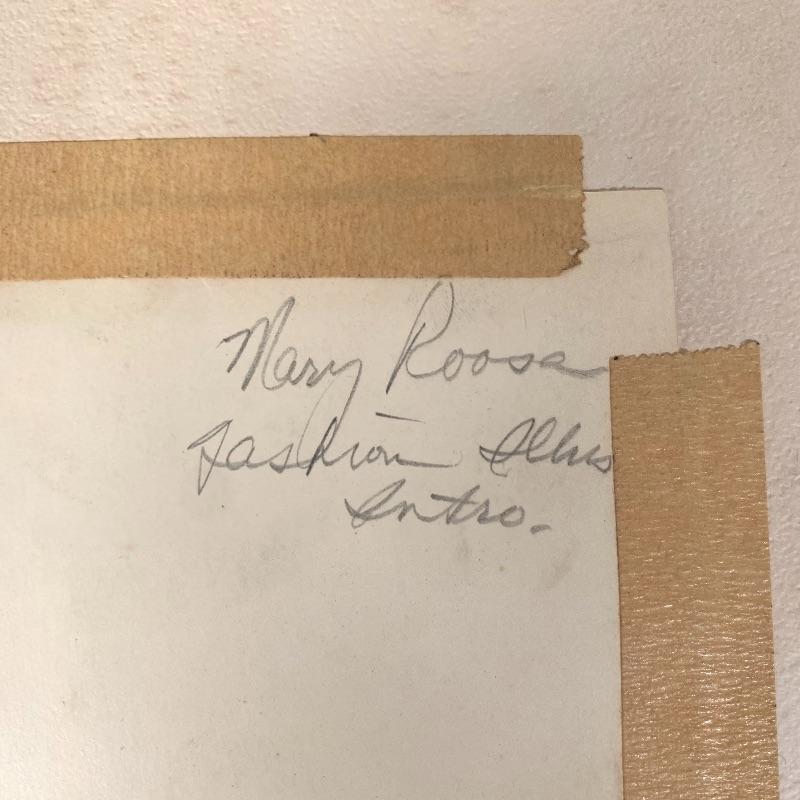 Mary Roosa
Fashion Illus
Intro.